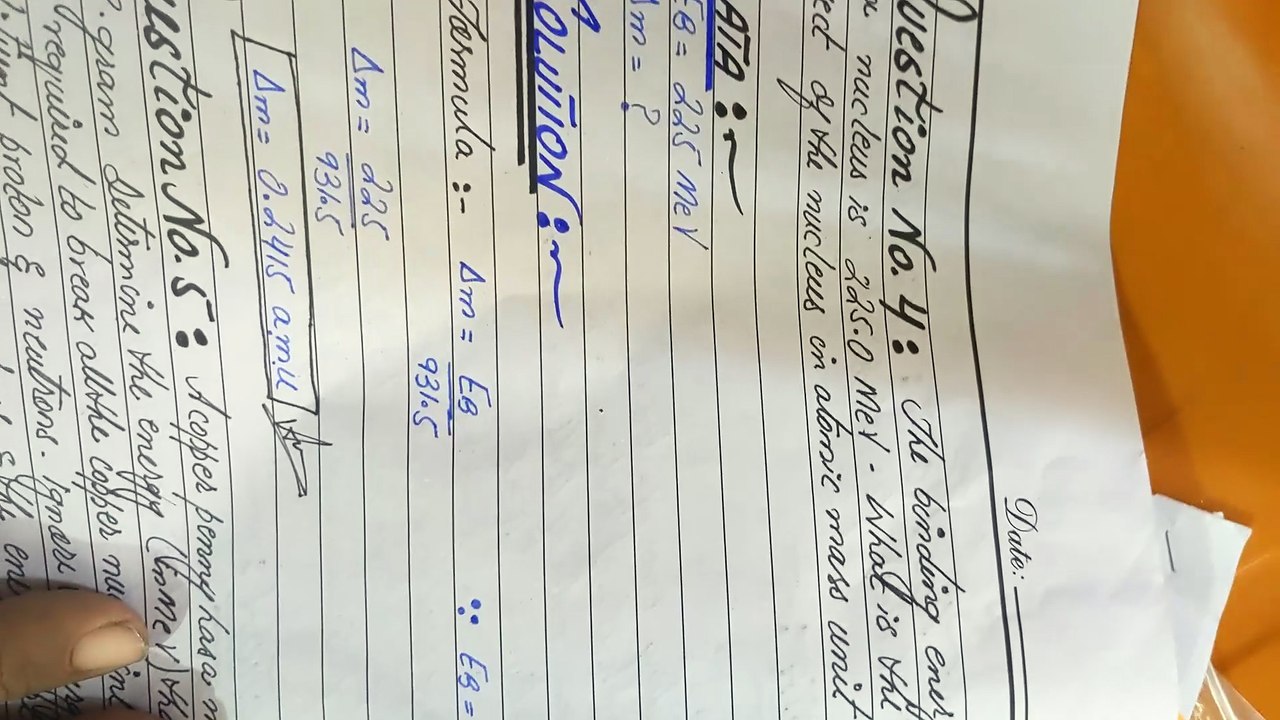 Date:
Question No. 4: The binding ener
nucleus is 225.0 MeV. What is the
ect of the nucleus in atomic mass unit
ATA:~
EB = 225 MeV
Δm = ?
OLUTION:~
Formula :- Δm = EB / 931.5 ∵ EB =
Δm = 225 / 931.5
Δm = 0.2415 a.m.u
uestion No. 5: A copper penny has a m
gram Determine the energy (in MeV) tha
required to break all the copper nu
proton & neutrons. ignore